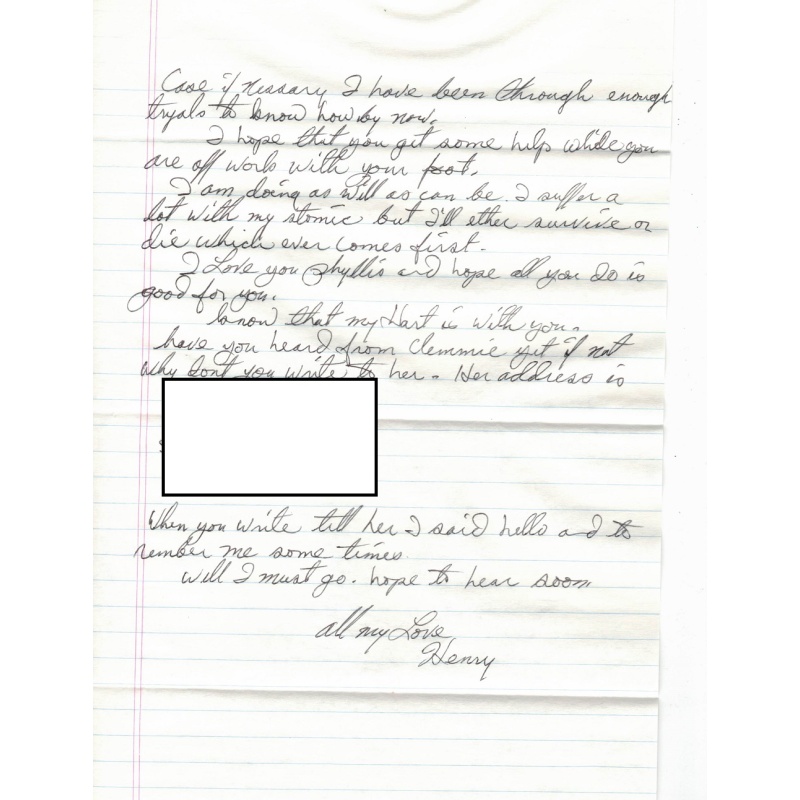 Case if nessary I have been through enough
tryals to know how by now.
I hope that you get some help while you
are off work with your foot.
I am doing as will as can be. I suffer a
lot with my stomic but I'll ether survive or
die which ever comes first.
I Love you Phyllis and hope all you do is
good for you.
know that my Hart is with you.
have you heard from Clemmie yet if not
why dont you write to her. Her address is
When you write till her I said hello and to
rember me some times.
Will I must go. hope to hear soon
all my Love
Henry